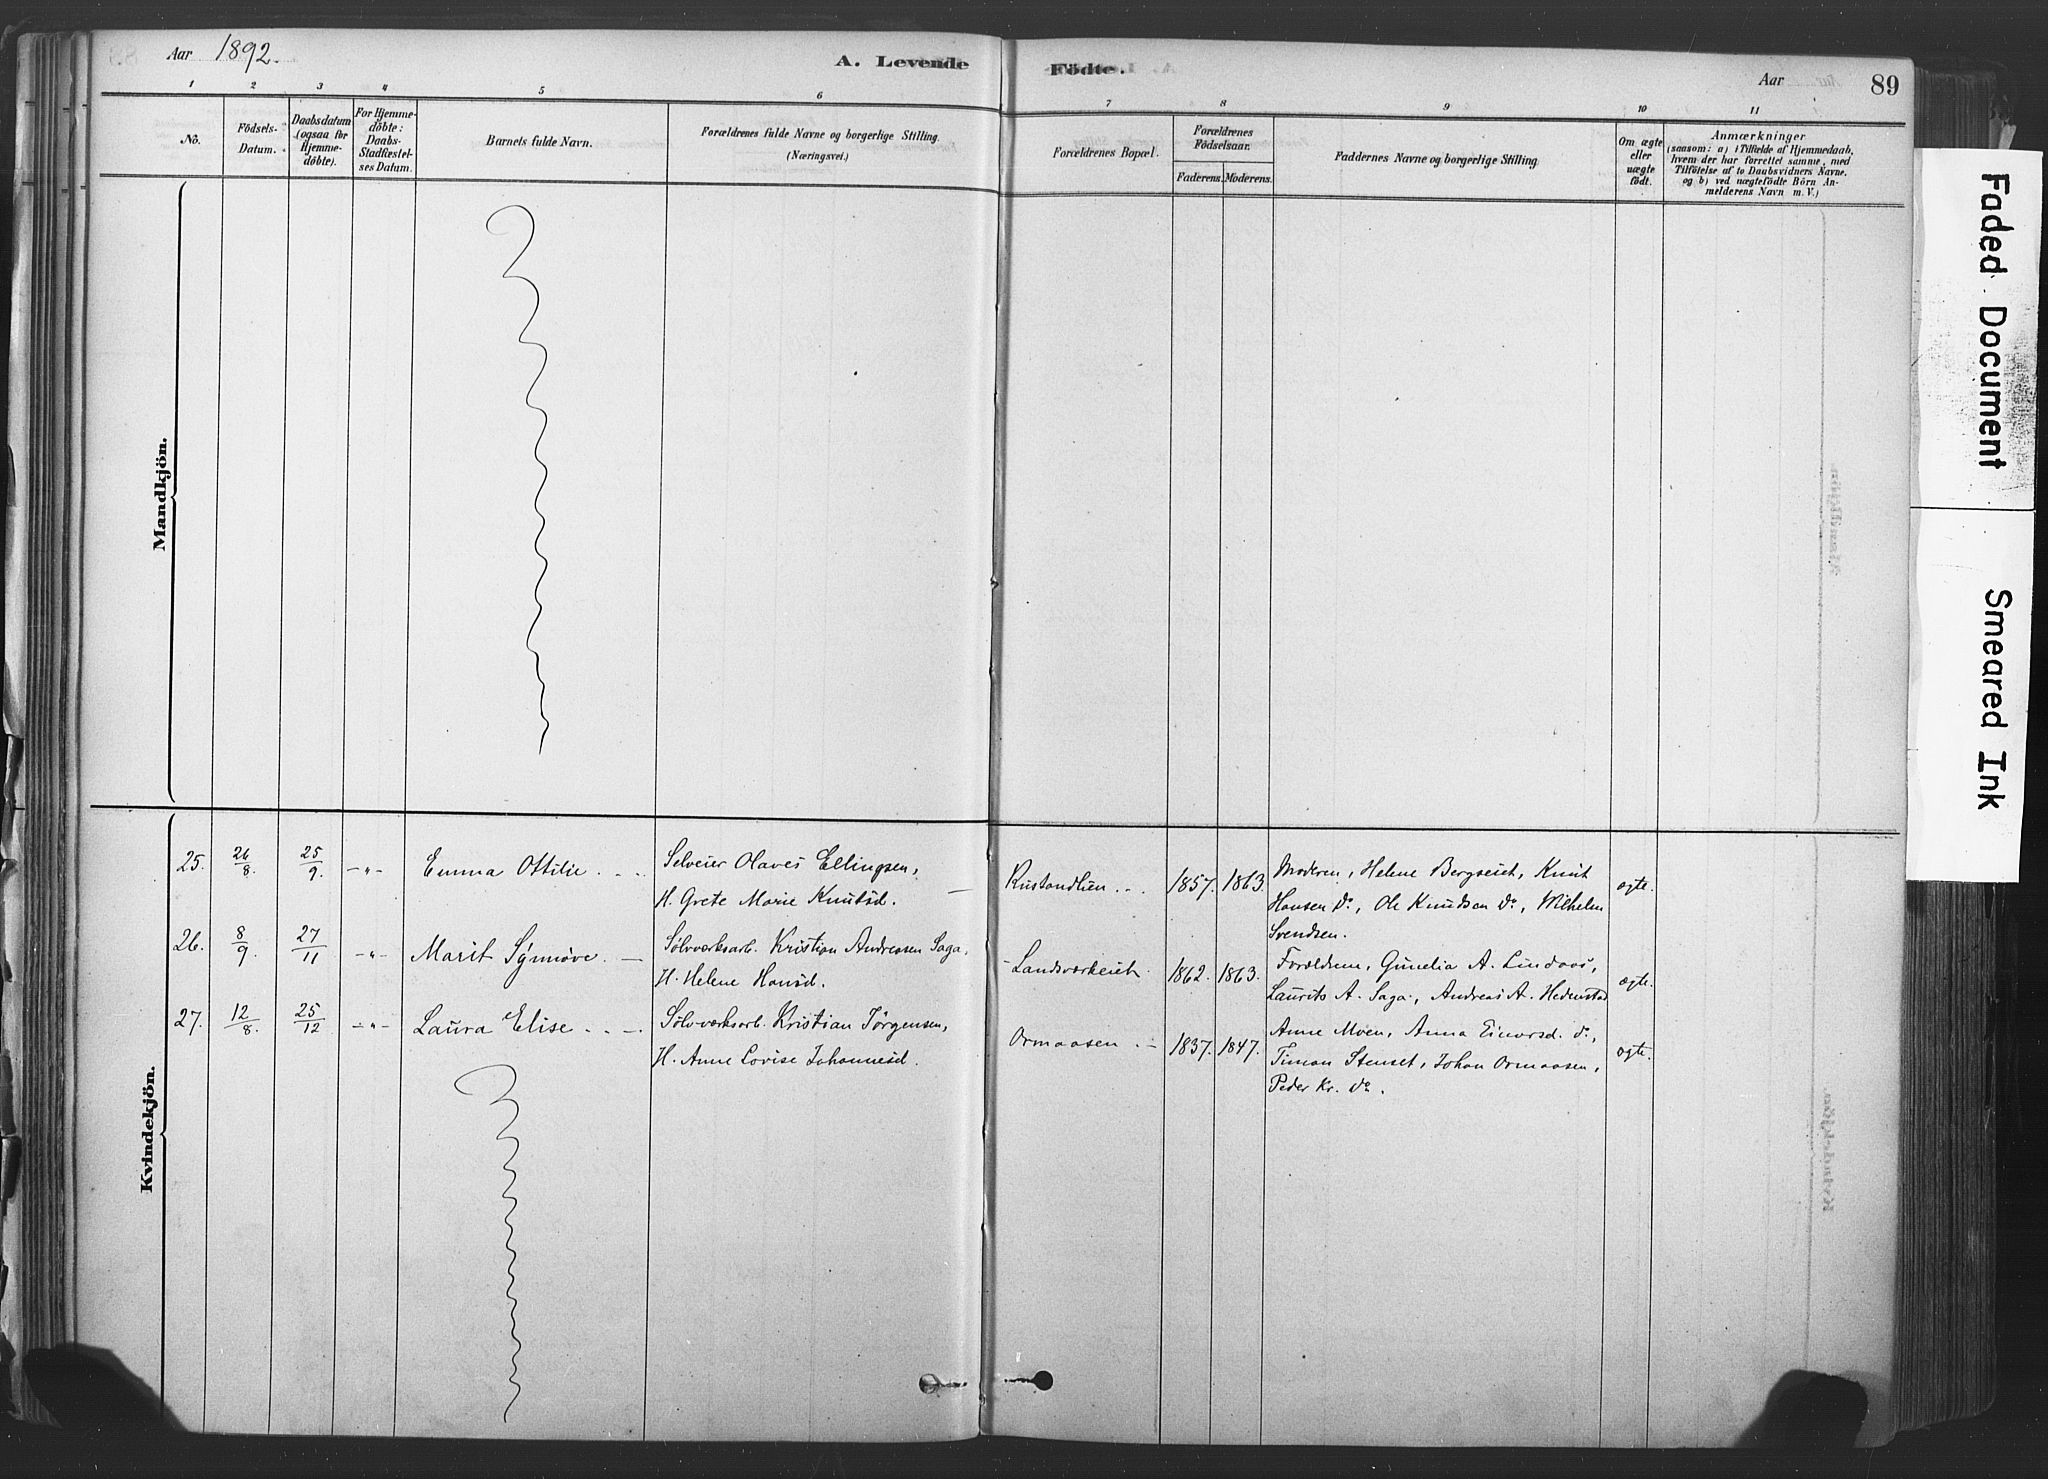 Aar 1892.
A. Levende Födte.
Aar
89
1 2 3 4 5 6 7 8 9 10 11
No.
Födsels-
Datum.
Daabsdatum
(ogsaa for
Hjemme-
döbte).
For Hjemme-
döbte:
Daabs-
Stadfæstel-
ses Datum.
Barnets fulde Navn.
Forældrenes fulde Navne og borgerlige Stilling.
(Næringsvei.)
Forældrenes Bopæl.
Forældrenes
Födselsaar.
Faderens. Moderens.
Faddernes Navne og borgerlige Stilling.
Om ægte
eller
uægte
födt.
Anmærkninger
(saasom: a) i Tilfælde af Hjemmedaab,
hvem der har forrettet samme, med
Tilföielse af to Daabsvidners Navne,
og b) ved uægtefödte Börn An-
melderens Navn m. V.)
Mandkjön.
Kvindekjön.
25. 26/8. 25/9. -"- Emma Ottilie
Selveier Olaves Ellingsen,
H. Grete Marie Knutsd.
1857. 1863.
Moderen, Helene Bergseich, Knut
Hansen do, Ole Knudsen do, Wilhelm
Svendsen.
ægte.
26. 8/9. 27/11 -"- Marit Synnøve.
Sølvværksarb. Kristian Andreasen Saga,
H. Helene Hansd.
Landsværkeich.
1862. 1863.
Forældrene, Gunelia A. Lindaas,
Laurits A. Saga, Andreas A. Hedenstad
ægte.
27. 12/8. 25/12 -"- Laura Elise
Sølvværksarb. Kristian Jørgensen,
H. Anne Lovise Johannesd.
Ormaasen
1837. 1847.
Anne Moen, Anna Einarsd. do,
Timan Stenset, Johan Ormaasen,
Peder Kr. do.
ægte.
Faded Document
Smeared Ink